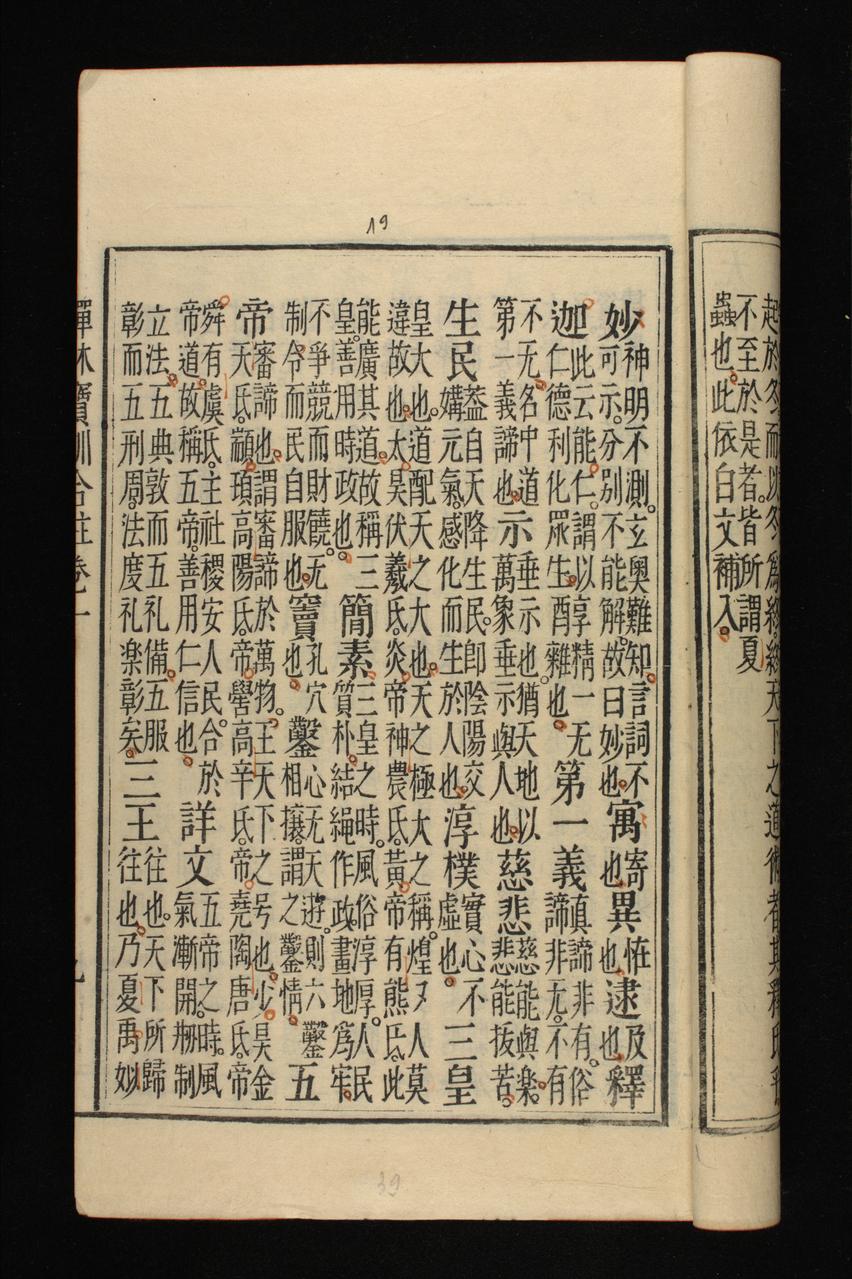 起於冬而以冬爲終總天下之道術者其釋氏乎
不至於是者。皆所謂夏
蟲也。此依白文補入。
19
妙神明不測。玄奧難知。言詞不可示。分別不能解。故曰妙也。寓寄也。異恠也。逮及也。釋
迦此云能仁。謂以仁德利化眾生。醇精一无雜也。第一義真諦非有。俗諦非无。不有
不无。名中道第一義諦也。示垂示也。猶天地以萬象垂示與人也。慈悲慈能與楽。悲能拔苦。
生民葢自天降生民。卽陰陽交媾元氣。感化而生於人也。淳樸實心不虛也。三皇
皇大也。道配天之大也。天之極大之稱。煌〻人莫違故也。太昊伏羲氏。炎帝神農氏。黃帝有熊氏。此
能廣其道。故稱三皇。善用時政也。簡素三皇之時。風俗淳厚。人民質朴。結繩作政。畫地爲牢。
不爭競而財饒。无制令而民自服也。竇孔穴也。鑿心无天遊。則六鑿相攘。謂之鑿情。五
帝審諦也。謂審諦於萬物。王天下之号也。少昊金天氏。顓頊高陽氏。帝嚳高辛氏。帝堯陶唐氏。帝
舜有虞氏。主社稷安人民。合於帝道。故稱五帝。善用仁信也。詳文五帝之時。風氣漸開。剏制
立法。五典敦而五礼備。五服彰而五刑周。法度礼楽彰矣。三王往也。天下所歸往也。乃夏禹妙
禪林寶訓合註卷一
九
39